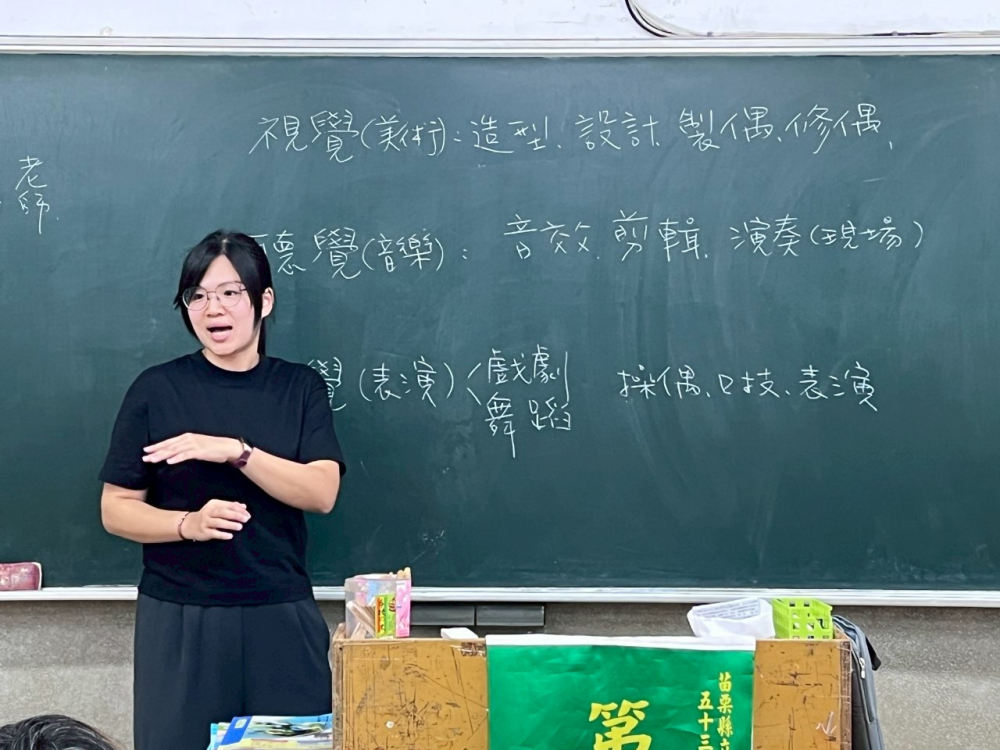 老
師
視覺(美術):造型、設計、製偶、修偶、
聽覺(音樂): 音效、剪輯、演奏(現場)
覺(表演)<戲劇 操偶、口技、表演
舞蹈
第
苗栗縣
五十三